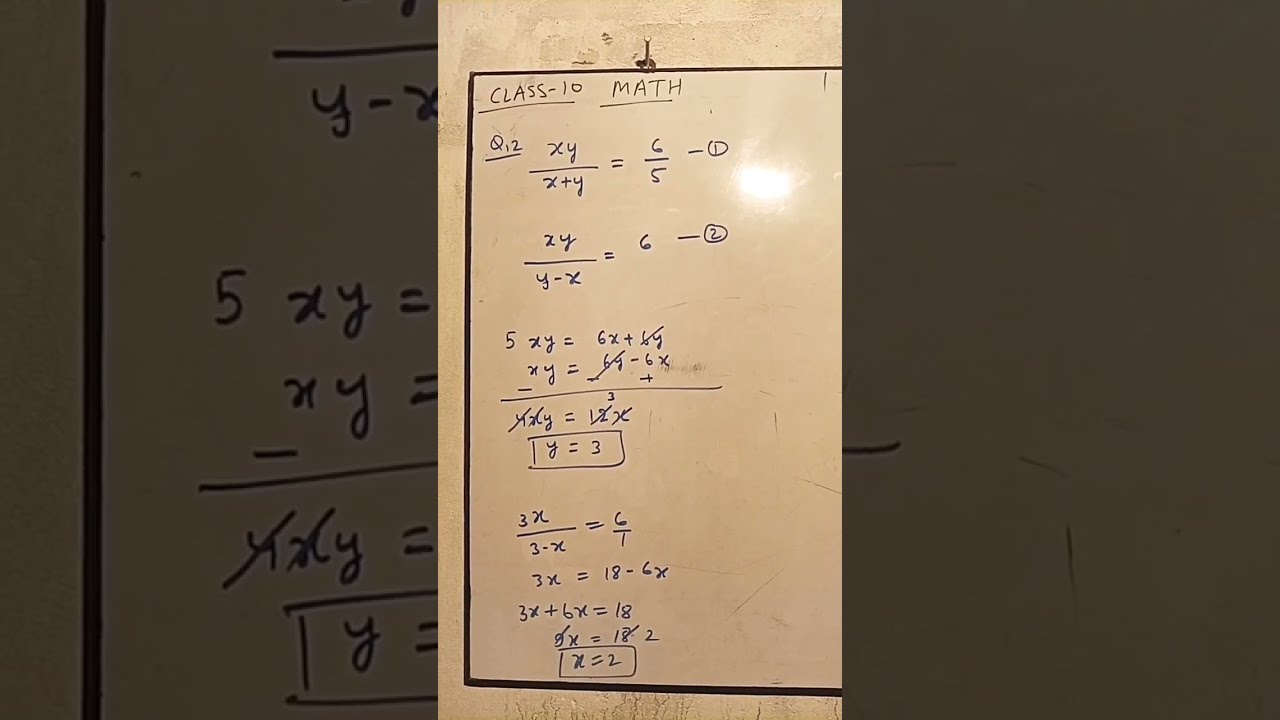 CLASS-10 MATH
Q.2 xy/x+y = 6/5 —①
xy/y-x = 6 —②
5 xy = 6x + 6y
xy = 6y - 6x
- - +
4xy = 12x 3
y = 3
3x/3-x = 6/1
3x = 18 - 6x
3x + 6x = 18
9x = 18 2
x = 2
y-x
5 xy =
xy =
-
4xy =
y =